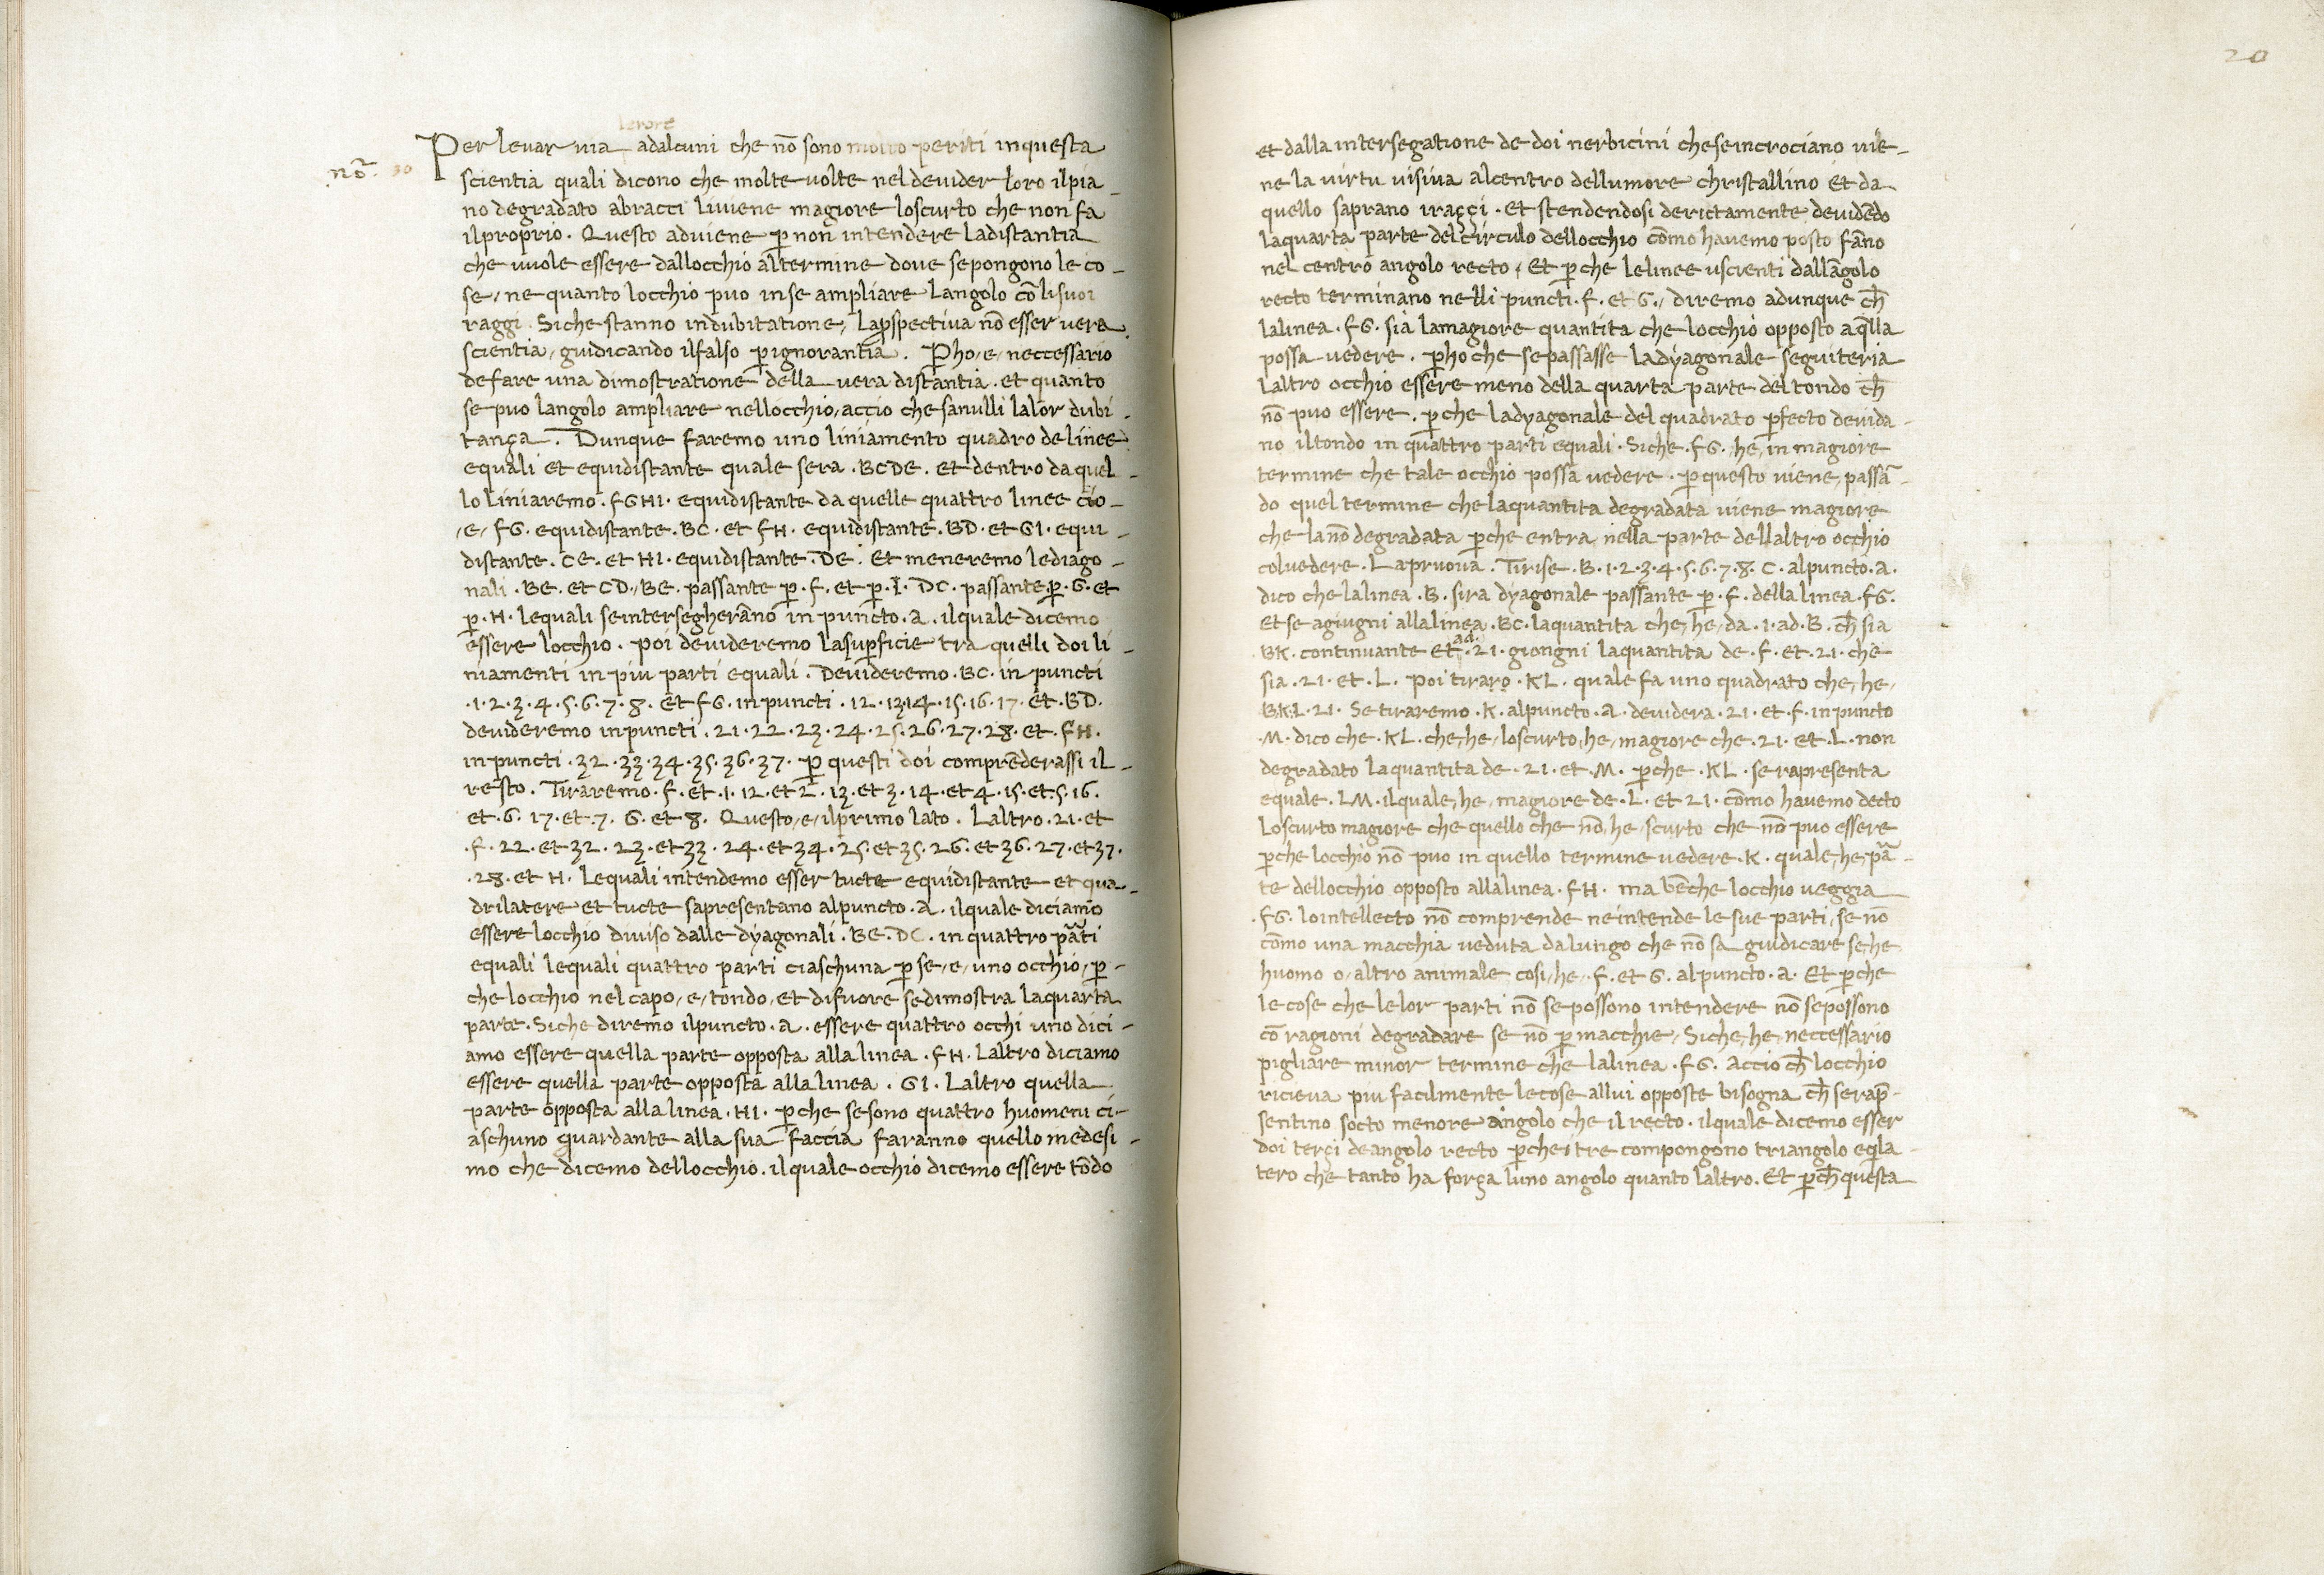 lerore
Per levar via adalcuni che nō sono molto periti inquesta
.nō. 30
scientia quali dicono che molte volte nel devider loro ilpia-
no degradato abracci liviene magiore loscurto che non fa
ilproprio. Questo adviene ꝑ non intendere ladistantia
che vuole essere dallocchio altermine dove sepongono le co-
se, ne quanto locchio puo inse ampliare langolo cō lisuoi
raggi. Siche stanno indubitatione, laꝑspectiva nō esser vera
scientia, giudicando ilfalso ꝑ ignorantia. Pho, e, neccessario
defare una dimostratione della vera distantia. et quanto
se puo langolo ampliare nellocchio, accio che sanulli lalor dubi-
tança. Dunque faremo uno liniamento quadro de linee
equali et equidistante quale sera .BCDE. et dentro daquel-
lo liniaremo. FGHI. equidistante da quelle quattro linee cio-
,e, FG. equidistante. BC. et FH. equidistante. BD. et GI. equi-
distante. CE. et HI. equidistante. DE. Et meneremo lediago-
nali. BE. et CD, BE. passante ꝑ .F. et ꝑ .I. DC. passante ꝑ .G. et
ꝑ .H. lequali seintersegherāno in puncto. A. ilquale dicemo
essere locchio. poi devideremo lasuꝑficie tra quelli doi li-
niamenti in piu parti equali. Devideremo. BC. in puncti
.1.2.3.4.5.6.7.8. et FG. inpuncti. 12.13.14.15.16.17. et. BD.
devideremo inpuncti. 21.22.23.24.25.26.27.28. et. FH.
inpuncti. 32.33.34.35.36.37. ꝑ questi doi comprēderassi il-
resto. Tiraremo. F. et. 1. 12. et 2. 13. et 3. 14. et 4. 15. et. 5. 16.
et. 6. 17. et. 7. G. et 8. Questo, e, ilprimo lato. Laltro. 21. et
.F. 22. et 32. 23. et 33. 24. et 34. 25. et 35. 26. et 36. 27. et 37.
.28. et H. Lequali intendemo esser tucte equidistante et qua-
drilatere et tucte sapresentano alpuncto. A. ilquale diciamo
essere locchio diviso dalle dyagonali. BE. DC. in quattro pāti
equali lequali quattro parti ciaschuna ꝑ se, e, uno occhio, ꝑ-
che locchio nel capo, e, tondo, et difuore sedimostra laquarta
parte. Siche diremo ilpuncto. A. essere quattro occhi uno dici-
amo essere quella parte opposta alla linea. FH. Laltro diciamo
essere quella parte opposta alla linea. GI. Laltro quella
parte opposta alla linea. HI. ꝑche se sono quattro huomeni ci-
aschuno guardante alla sua faccia faranno quello medesi-
mo che dicemo dellocchio. ilquale occhio dicemo essere tōdo
20
et dalla intersegatione de doi nerbicini cheseincrociano vie-
ne la virtu visiva alcentro dellumore christallino et da
quello saprano iraççi. et stendendosi derictamente devidēdo
laquarta parte del circulo dellocchio cōmo havemo posto fāno
nel centro angolo recto, Et ꝑche lelinee uscienti dallāgolo
recto terminano nelli puncti. F. et G., diremo adunque ch̄
lalinea. FG. sia lamagiore quantita che locchio opposto aq̄lla
possa vedere. ꝑho che sepassasse ladyagonale seguiteria
laltro occhio essere meno della quarta parte del tondo ch̄
nō puo essere. ꝑche ladyagonale del quadrato ꝑfecto devida-
no iltondo in quattro parti equali. Siche. FG. he, in magiore
termine che tale occhio possa vedere. ꝑ questo viene, passā-
do quel termine che laquantita degradata viene magiore
che lanō degradata ꝑche entra nella parte dellaltro occhio
colvedere. La pruova. Tirise. B. 1.2.3.4.5.6.7.8. C. alpuncto. A.
dico che lalinea. B. sira dyagonale passante ꝑ .F. della linea. FG.
et se agiugni allalinea. BC. laquantita che, he, da .1. ad. B. ch̄ sia
BK. continuante et ad .21. giongni laquantita de .F. et. 21. che
sia. 21. et. L. poi tiraro. KL. quale fa uno quadrato che, he,
B.K.L. 21. Se tiraremo. K. alpuncto. A. devidera. 21. et. F. inpuncto
.M. dico che. KL. che, he, loscurto, he, magiore che. 21. et. L. non
degradato laquantita de. 21. et. M. ꝑche. KL. se rapresenta
equale. LM. ilquale, he, magiore de. L. et 21. cōmo havemo decto
Loscurto magiore che quello che nō, he, scurto che nō puo essere
ꝑche locchio nō puo in quello termine vedere. K. quale, he, pā-
te dellocchio opposto allalinea. FH. ma bēche locchio veggia
.FG. lointellecto nō comprende neintende le sue parti, se nō
cōmo una macchia veduta dalungo che nō sa giudicare se, he
huomo o, altro animale cosi, he, .F. et G. alpuncto. A. Et ꝑche
le cose che lelor parti nō se possono intendere nō sepossono
cō ragioni degradare se nō ꝑ macchie, Siche, he, neccessario
pigliare minor termine che lalinea. FG. accio ch̄ locchio
riceva piu facilmente lecose allui opposte bisogna ch̄ serap̄-
sentino socto menore angolo che il recto. ilquale dicemo esser
doi terçi deangolo recto ꝑche i tre compongono triangolo eq̄la-
tero che tanto ha força luno angolo quanto laltro. Et ꝑch̄ questa